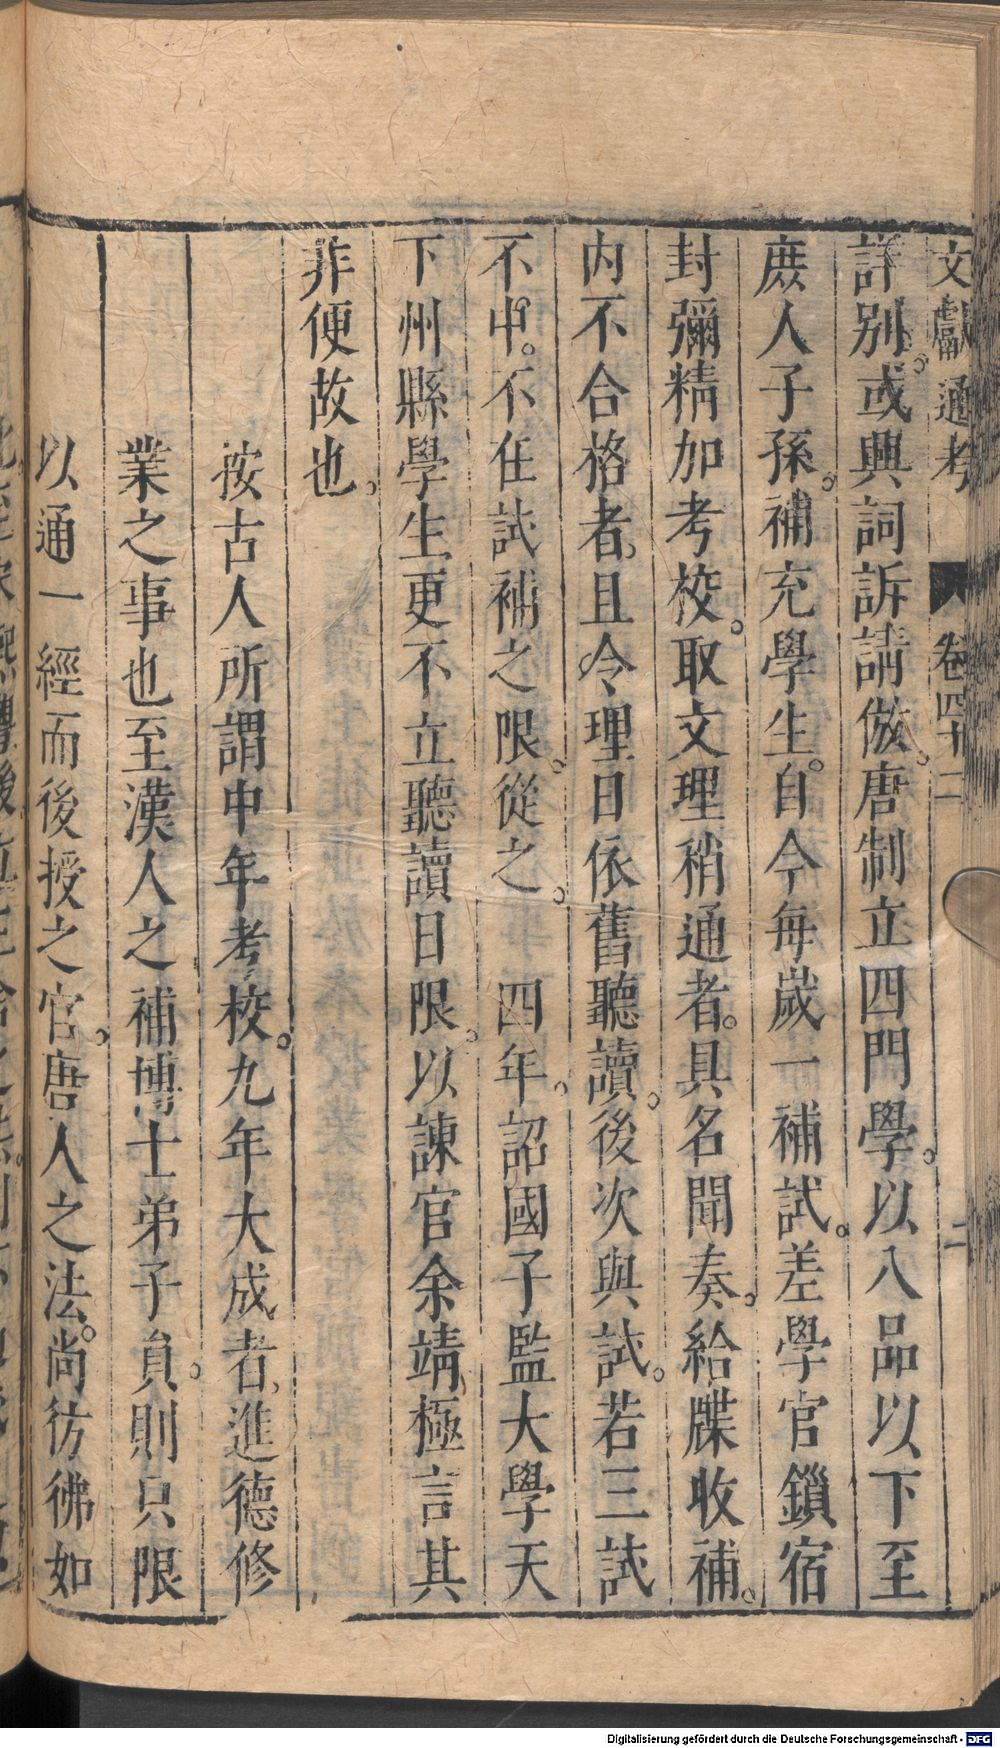 文獻通考 卷四十二 二
詳別。或興詞訴請倣。唐制立四門學。以八品以下至
庶人子孫。補充學生。自今每歲一補試。差學官鎖宿
封彌精加考校。取文理稍通者。具名聞奏。給牒收補。
内不合格者。且令理日依舊聽讀。後次與試。若三試
不中。不在試補之限。從之。 四年。詔國子監大學天
下州縣學生更不立聽讀日限。以諫官余靖極言其
非便故也。
按古人所謂中年考校。九年大成者。進德修
業之事也至漢人之補博士弟子負。則只限
以通一經而後授之官。唐人之法。尚彷彿如
Digitalisierung gefördert durch die Deutsche Forschungsgemeinschaft - DFG